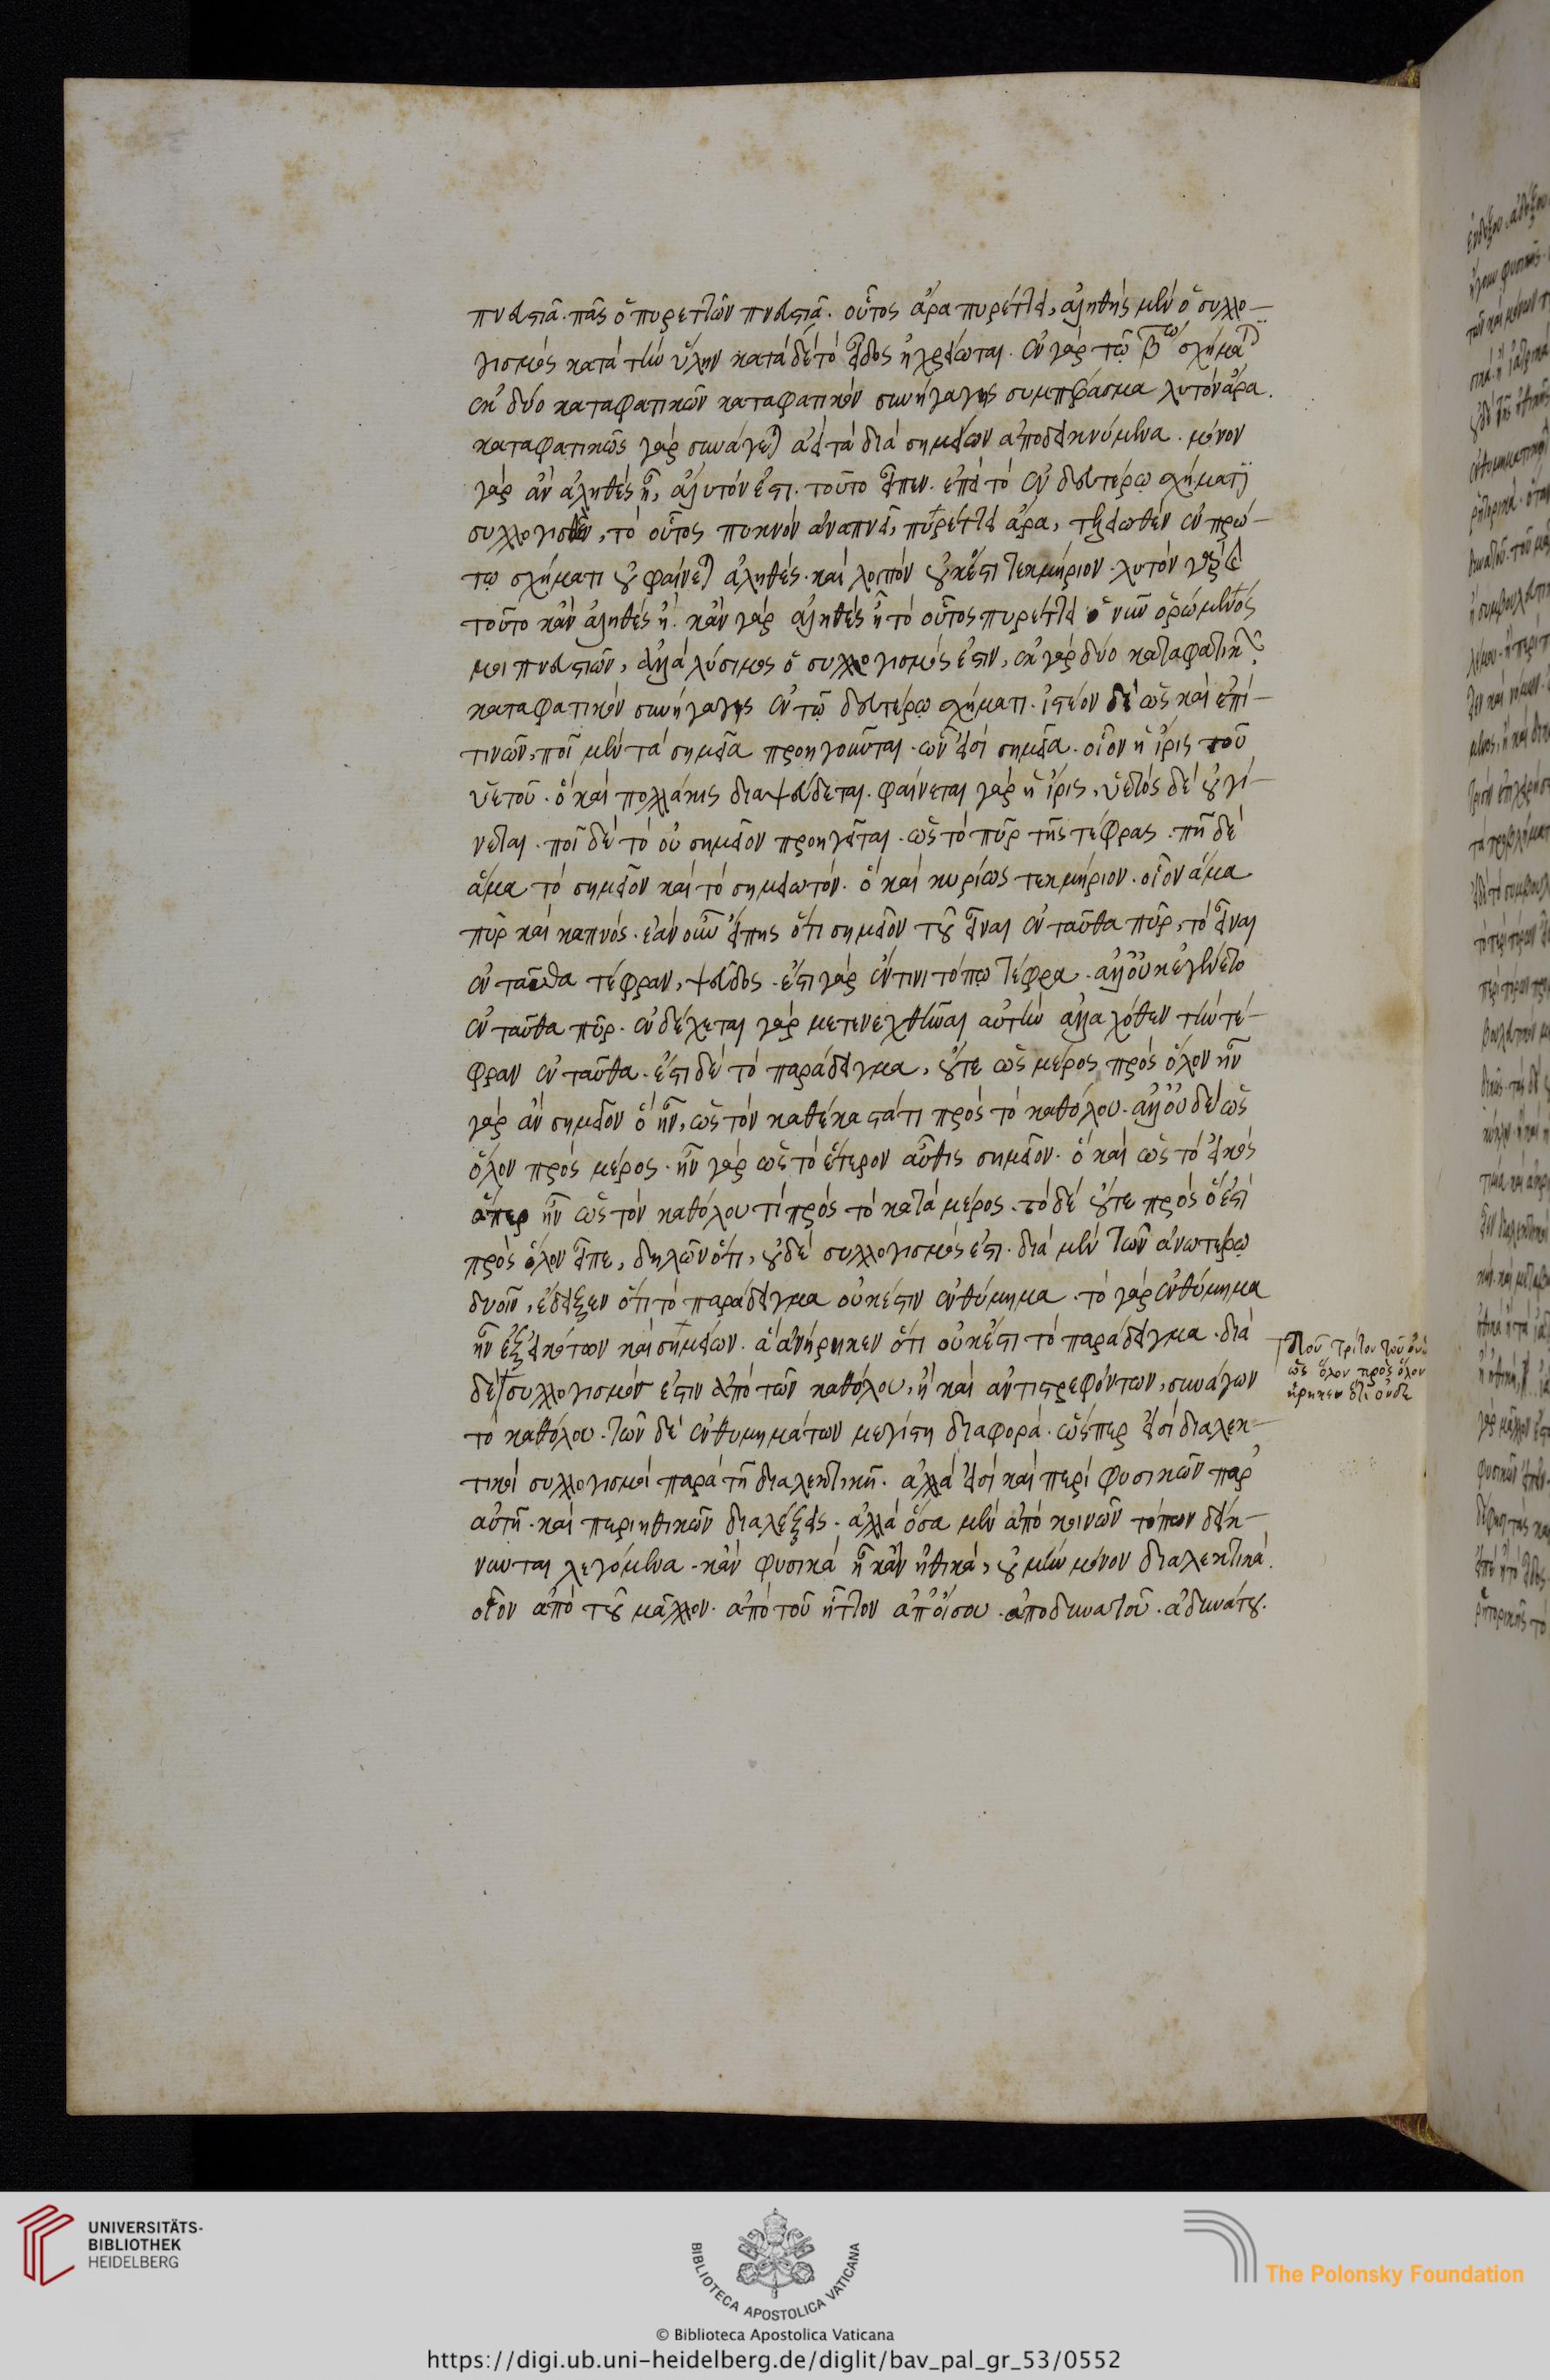 πνευστιᾶ. πᾶς ὁ πυρετλῶν πνευστιᾶ. οὗτος ἄρα πυρέττει, ἀληθής μὲν ὁ συλλο-
γισμός κατά τὴν ὕλην κατά δέ τό εἶδος ἠχρείωται. ἐν γάρ τῷ βω σχήμα
ἐκ δύο καταφατικῶν καταφατικόν συνήγαγες συμπέρασμα λυτόν ἄρα.
καταφατικῶς γάρ συνάγεται ἀεί τά διά σημείων ἀποδεικνύμενα. μόνον
γάρ ἄν ἀληθές ᾖ, ἄλυτόν ἐστι. τοῦτο εἶπεν. ἐπεί τό ἐν δευτέρῳ σχήματι
συλλογισθέν, τό οὗτος πυκνόν ἀναπνεῖ, πυρέττει ἄρα, τεξεωθέν ἐν πρώ-
τῳ σχήματι οὐ φαίνεται ἀληθές. καί λοιπόν οὐκ ἔστι τεκμήριον. λυτόν γάρ
τοῦτο κἄν ἀληθές ᾖ. κἄν γάρ ἀληθές ᾖ τό οὗτος πυρέττει ὁ νῦν ὁρώμενός
μοι πνευστιῶν, ἀλλά λύσιμος ὁ συλλογισμός ἐστιν, ἐκ γάρ δύο καταφατικῶν
καταφατικόν συνήγαγες ἐν τῷ δευτέρῳ σχήματι. ἰστέον δέ ὡς καί ἐπί
τινῶν, ποῖ μέν τά σημεῖα προηγοῦνται. ὧν εἰσί σημεῖα. οἷον ἡ ἶρις τοῦ
ὑετοῦ. ὅ καί πολλάκις διαψεύδεται. φαίνεται γάρ ἡ ἶρις, ὑετός δέ οὐ γί-
νεται. ποῖ δέ τό οὗ σημεῖον προηγεῖται. ὡς τό πῦρ τῆς τέφρας. πῆ δέ
ἅμα τό σημεῖον καί τό σημειωτόν. ὅ καί κυρίως τεκμήριον. οἷον ἅμα
πῦρ καί καπνός. ἐάν οὖν εἴπης ὅτι σημεῖον τοῦ εἶναι ἐνταῦθα πῦρ, τό εἶναι
ἐνταῦθα τέφραν, ψεῦδος. ἔστι γάρ ἔν τινι τόπῳ τέφρα. ἀλλ' οὐκ ἐγένετο
ἐνταῦθα πῦρ. ἐνδέχεται γάρ μετενεχθῆναι αὐτήν ἀλλαχόθεν τήν τέ-
φραν ἐνταῦθα. ἔστι δέ τό παράδειγμα, οὔτε ὡς μέρος πρός ὅλον ἦν
γάρ ἄν σημεῖον ὅ ἦν, ὡς τόν καθέκαστά τι πρός τό καθόλου. ἀλλ' οὐδέ ὡς
ὅλον πρός μέρος. ἦν γάρ ὡς τό ἕτερον αὖθις σημεῖον. ὅ καί ὡς τό εἰκός
ἅπερ ἦν ὡς τόν καθόλου τί πρός τό κατά μέρος. τό δέ οὔτε πρός ὅ ἐστί
πρός ὅλον εἶπε, δηλῶν ὅτι, οὐδέ συλλογισμός ἐστι. διά μέν τῶν ἀνωτέρω
δυοῖν, ἔδειξεν ὅτι τό παράδειγμα οὐκ ἔστιν ἐνθύμημα. τό γάρ ἐνθύμημα
ἦν ἐξ εἰκότων καί σημείων. ἅ ἀνήρηκεν ὅτι οὐκ ἔστι τό παράδειγμα. διά
δέ συλλογισμόν ἐστιν ἀπό τῶν καθόλου, ἤ καί ἀντιστρεφόντων, συνάγων
τό καθόλου. τῶν δέ ἐνθυμημάτων μεγίστη διαφορά. ὥσπερ εἰσί διαλεκ-
τικοί συλλογισμοί παρά τῆ διαλεκτικῆ. ἀλλά εἰσί καί περί φυσικῶν παρ'
αὐτῆ. καί περι ηθικῶν διαλέξεις. ἀλλά ὅσα μέν ἀπό κοινῶν τόπων δείκ-
νυνται λεγόμενα. κἄν φυσικά ᾖ κἄν ἠθικά, οὐ μήν μόνον διαλεκτικά.
οἷον ἀπό τοῦ μᾶλλον. ἀπό τοῦ ἧττον ἀπ' ὀΐσου. ἀπο δυνατοῦ. ἀδυνάτου.
τοῦ τρίτου τοῦ
ὡς ὅλον πρός ὅλον
εἴρηκεν ὅτι οὐδε
UNIVERSITÄTS-
BIBLIOTHEK
HEIDELBERG
BIBLIOTECA APOSTOLICA VATICANA
The Polonsky Foundation
© Biblioteca Apostolica Vaticana
https://digi.ub.uni-heidelberg.de/diglit/bav_pal_gr_53/0552